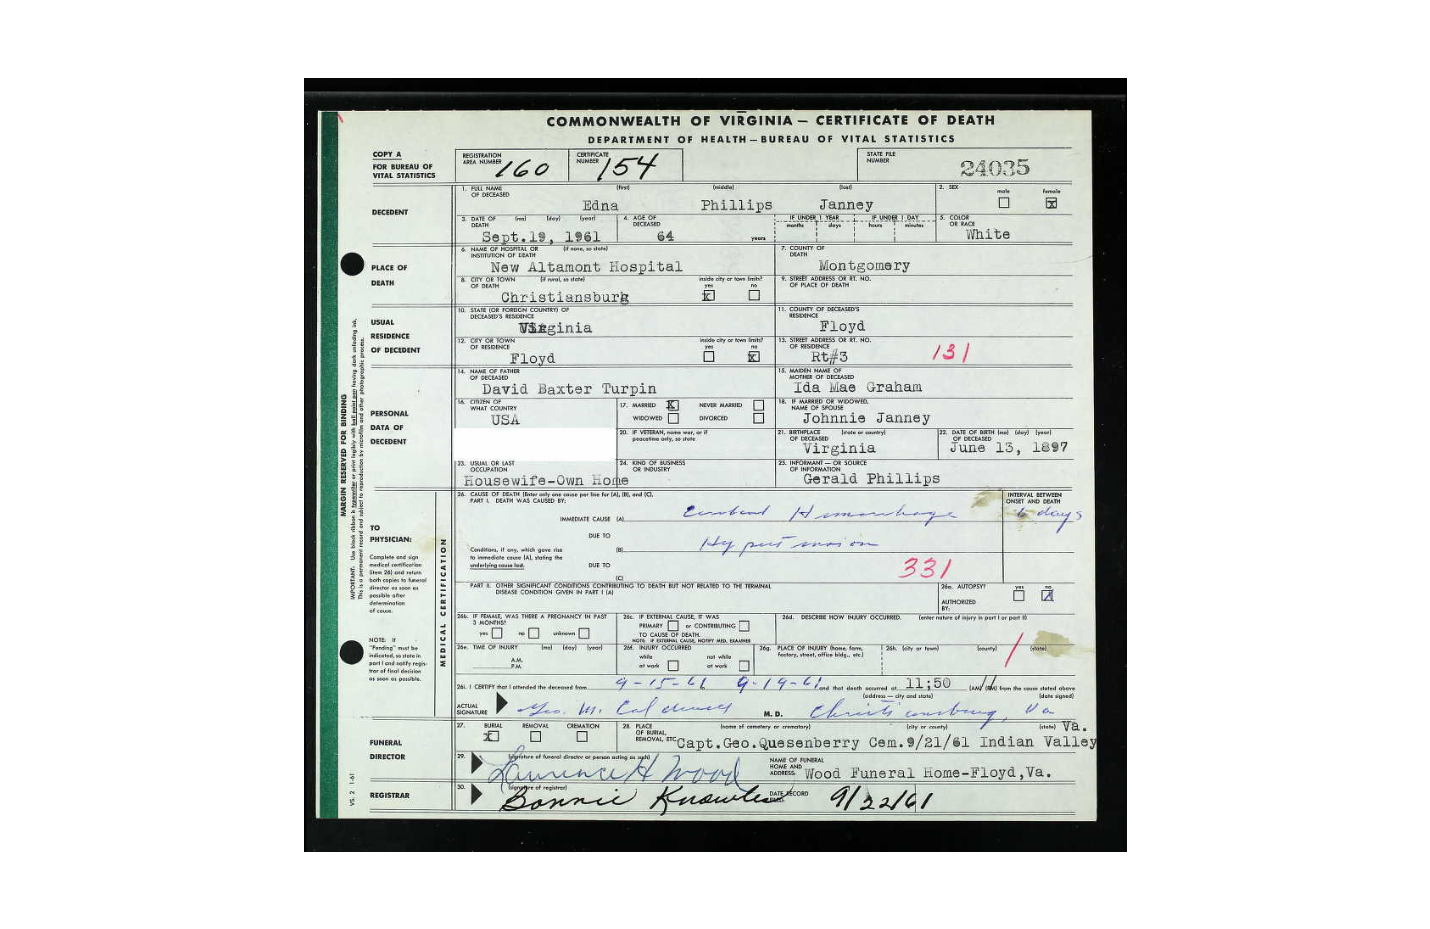 COMMONWEALTH OF VIRGINIA — CERTIFICATE OF DEATH
DEPARTMENT OF HEALTH — BUREAU OF VITAL STATISTICS
COPY A
FOR BUREAU OF
VITAL STATISTICS
REGISTRATION
AREA NUMBER 160
CERTIFICATE
NUMBER 154
STATE FILE
NUMBER 24035
DECEDENT
1. FULL NAME OF DECEASED (first) (middle) (last)
Edna Phillips Janney
2. SEX male female x
3. DATE OF DEATH (mo) (day) (year)
Sept.19, 1961
4. AGE OF DECEASED
64 years
IF UNDER 1 YEAR months days
IF UNDER 1 DAY hours minutes
5. COLOR OR RACE
White
PLACE OF
DEATH
6. NAME OF HOSPITAL OR INSTITUTION OF DEATH (if none, so state)
New Altamont Hospital
7. COUNTY OF DEATH
Montgomery
8. CITY OR TOWN OF DEATH (if rural, so state)
Christiansburg
inside city or town limits? yes x no
9. STREET ADDRESS OR RT. NO. OF PLACE OF DEATH
USUAL
RESIDENCE
OF DECEDENT
10. STATE (OR FOREIGN COUNTRY) OF DECEASED'S RESIDENCE
Virginia
11. COUNTY OF DECEASED'S RESIDENCE
Floyd
12. CITY OR TOWN OF RESIDENCE
Floyd
inside city or town limits? yes no x
13. STREET ADDRESS OR RT. NO. OF RESIDENCE
Rt#3 131
PERSONAL
DATA OF
DECEDENT
14. NAME OF FATHER OF DECEASED
David Baxter Turpin
15. MAIDEN NAME OF MOTHER OF DECEASED
Ida Mae Graham
16. CITIZEN OF WHAT COUNTRY
USA
17. MARRIED X NEVER MARRIED
WIDOWED DIVORCED
18. IF MARRIED OR WIDOWED, NAME OF SPOUSE
Johnnie Janney
20. IF VETERAN, name war, or if peacetime only, so state
21. BIRTHPLACE OF DECEASED (state or country)
Virginia
22. DATE OF BIRTH OF DECEASED (mo) (day) (year)
June 13, 1897
23. USUAL OR LAST OCCUPATION
Housewife-Own Home
24. KIND OF BUSINESS OR INDUSTRY
25. INFORMANT — OR SOURCE OF INFORMATION
Gerald Phillips
MARGIN RESERVED FOR BINDING
MEDICAL CERTIFICATION
TO
PHYSICIAN:
Complete and sign
medical certification
(item 26) and return
both copies to funeral
director as soon as
possible after
determination
of cause.
NOTE: IF
"Pending" must be
indicated, so state in
part I and notify regis-
trar of final decision
as soon as possible.
26. CAUSE OF DEATH (Enter only one cause per line for (A), (B), and (C).
PART I. DEATH WAS CAUSED BY:
INTERVAL BETWEEN
ONSET AND DEATH
IMMEDIATE CAUSE (A) Cerebral Hemorrhage 6 days
DUE TO
(B) Hypertension
Conditions, if any, which gave rise
to immediate cause (A), stating the
underlying cause last.
DUE TO
(C) 331
PART II. OTHER SIGNIFICANT CONDITIONS CONTRIBUTING TO DEATH BUT NOT RELATED TO THE TERMINAL
DISEASE CONDITION GIVEN IN PART I (A)
26a. AUTOPSY? yes no
AUTHORIZED
BY:
26b. IF FEMALE, WAS THERE A PREGNANCY IN PAST
3 MONTHS?
yes no unknown
26c. IF EXTERNAL CAUSE, IT WAS
PRIMARY or CONTRIBUTING
TO CAUSE OF DEATH.
NOTE: IF EXTERNAL CAUSE, NOTIFY MED. EXAMINER
26d. DESCRIBE HOW INJURY OCCURRED. (enter nature of injury in part I or part II)
26e. TIME OF INJURY (mo) (day) (year)
A.M.
P.M.
26f. INJURY OCCURRED
while at work not while at work
26g. PLACE OF INJURY (home, farm, factory, street, office bldg., etc.)
26h. (city or town) (county) (state)
26i. I CERTIFY that I attended the deceased from 9-15-61 9-19-61 and that death occurred at 11;50 (AM) (PM) from the cause stated above
(address — city and state) (date signed)
ACTUAL
SIGNATURE Geo. M. M.D. Christiansburg, Va
FUNERAL
DIRECTOR
27. BURIAL x REMOVAL CREMATION
28. PLACE OF BURIAL, REMOVAL, ETC. (name of cemetery or crematory) (city or county) (state) Va.
Capt.Geo.Quesenberry Cem.9/21/61 Indian Valley
29. (signature of funeral director or person acting as such)
Lawrence H Wood
NAME OF FUNERAL HOME AND ADDRESS: Wood Funeral Home-Floyd,Va.
REGISTRAR
30. (signature of registrar)
Bonnie Knowles
DATE RECORD 9/22/61
VS. 2 1-61